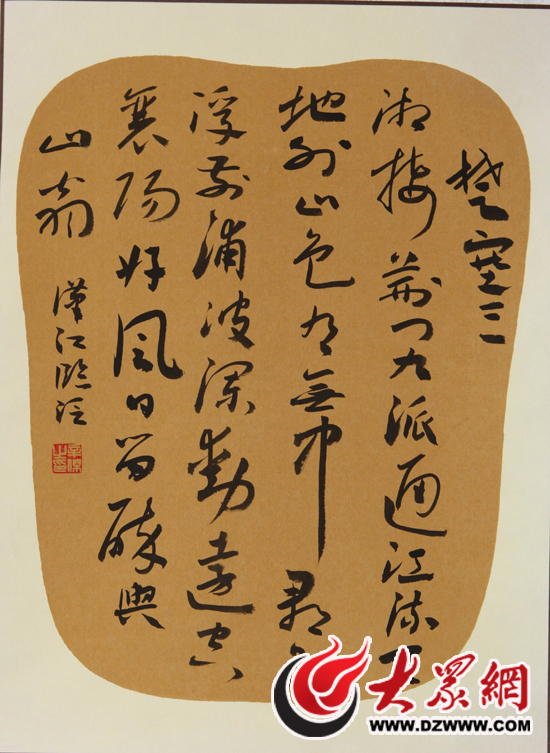 楚塞三
湘接荆門九派通江流天
地外山色有無中郡邑
浮前浦波瀾動遠空
襄陽好風日留醉與
山翁
漢江臨泛
大眾網
WWW.DZWWW.COM